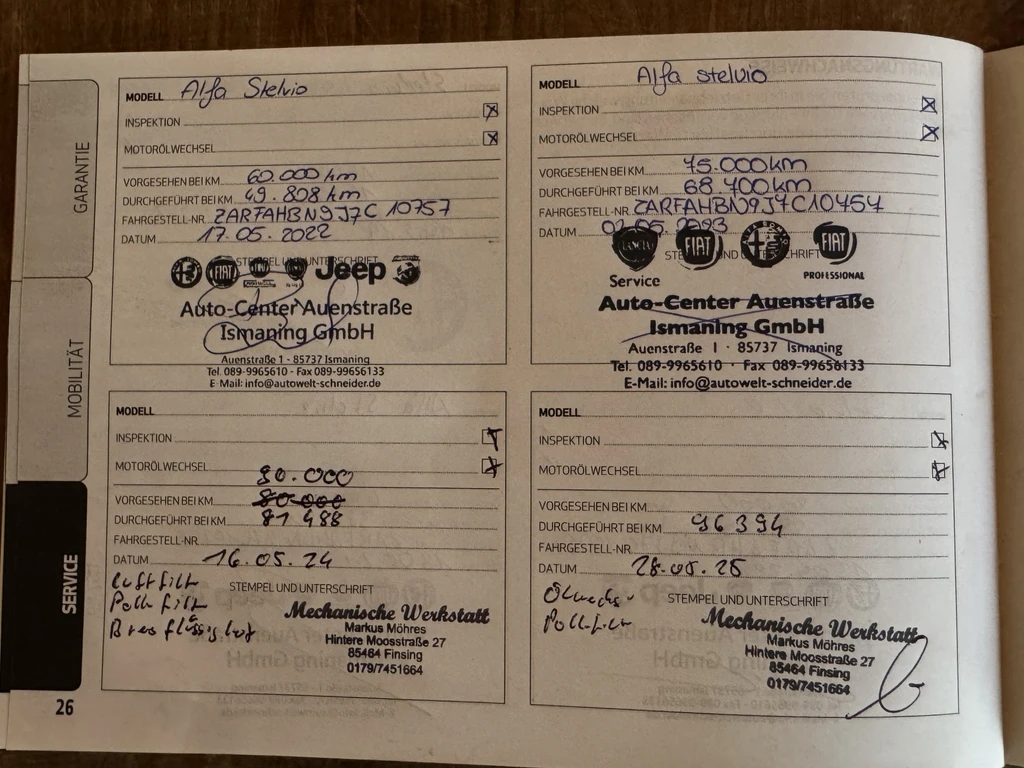 GARANTIE
MOBILITÄT
SERVICE
26
MODELL Alfa Stelvio
INSPEKTION
MOTORÖLWECHSEL
VORGESEHEN BEI KM 60.000 km
DURCHGEFÜHRT BEI KM 49.808 km
FAHRGESTELL-NR. ZARFAHBN9J7C 10757
DATUM 17.05.2022
STEMPEL UND UNTERSCHRIFT
FIAT Jeep
Auto-Center Auenstraße
Ismaning GmbH
Auenstraße 1 - 85737 Ismaning
Tel. 089-9965610 - Fax 089-99656133
E-Mail: info@autowelt-schneider.de
MODELL Alfa Stelvio
INSPEKTION
MOTORÖLWECHSEL
VORGESEHEN BEI KM 75.000km
DURCHGEFÜHRT BEI KM 68.700km
FAHRGESTELL-NR. ZARFAHBN9J7C10757
DATUM
STEMPEL UND UNTERSCHRIFT
LANCIA FIAT FIAT
Service PROFESSIONAL
Auto-Center Auenstraße
Ismaning GmbH
Auenstraße 1 · 85737 Ismaning
Tel. 089-9965610 · Fax 089-99656133
E-Mail: info@autowelt-schneider.de
MODELL
INSPEKTION
MOTORÖLWECHSEL
90.000
VORGESEHEN BEI KM 80.000
DURCHGEFÜHRT BEI KM 81 488
FAHRGESTELL-NR.
DATUM 16.05.24
Luftfilt
Pollfilt
Bremsflüssigkeit
STEMPEL UND UNTERSCHRIFT
Mechanische Werkstatt
Markus Möhres
Hintere Moosstraße 27
85464 Finsing
0179/7451664
MODELL
INSPEKTION
MOTORÖLWECHSEL
VORGESEHEN BEI KM
DURCHGEFÜHRT BEI KM 96394
FAHRGESTELL-NR.
DATUM 28.05.25
Ölwechs
Pollfilt
STEMPEL UND UNTERSCHRIFT
Mechanische Werkstatt
Markus Möhres
Hintere Moosstraße 27
85464 Finsing
0179/7451664